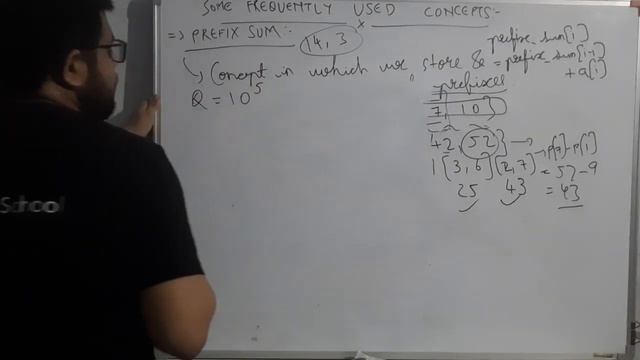 SOME FREQUENTLY USED CONCEPTS:-
=> PREFIX SUM:-
14, 3
prefix_sum[i]
= prefix_sum[i-1]
+ a[i]
Concept in which we store &
prefixes
Q = 10^5
7, 10}
42, 52}
p[7]-p[1]
1 [3, 6] [2, 7]
= 52-9
25 43
= 43
School